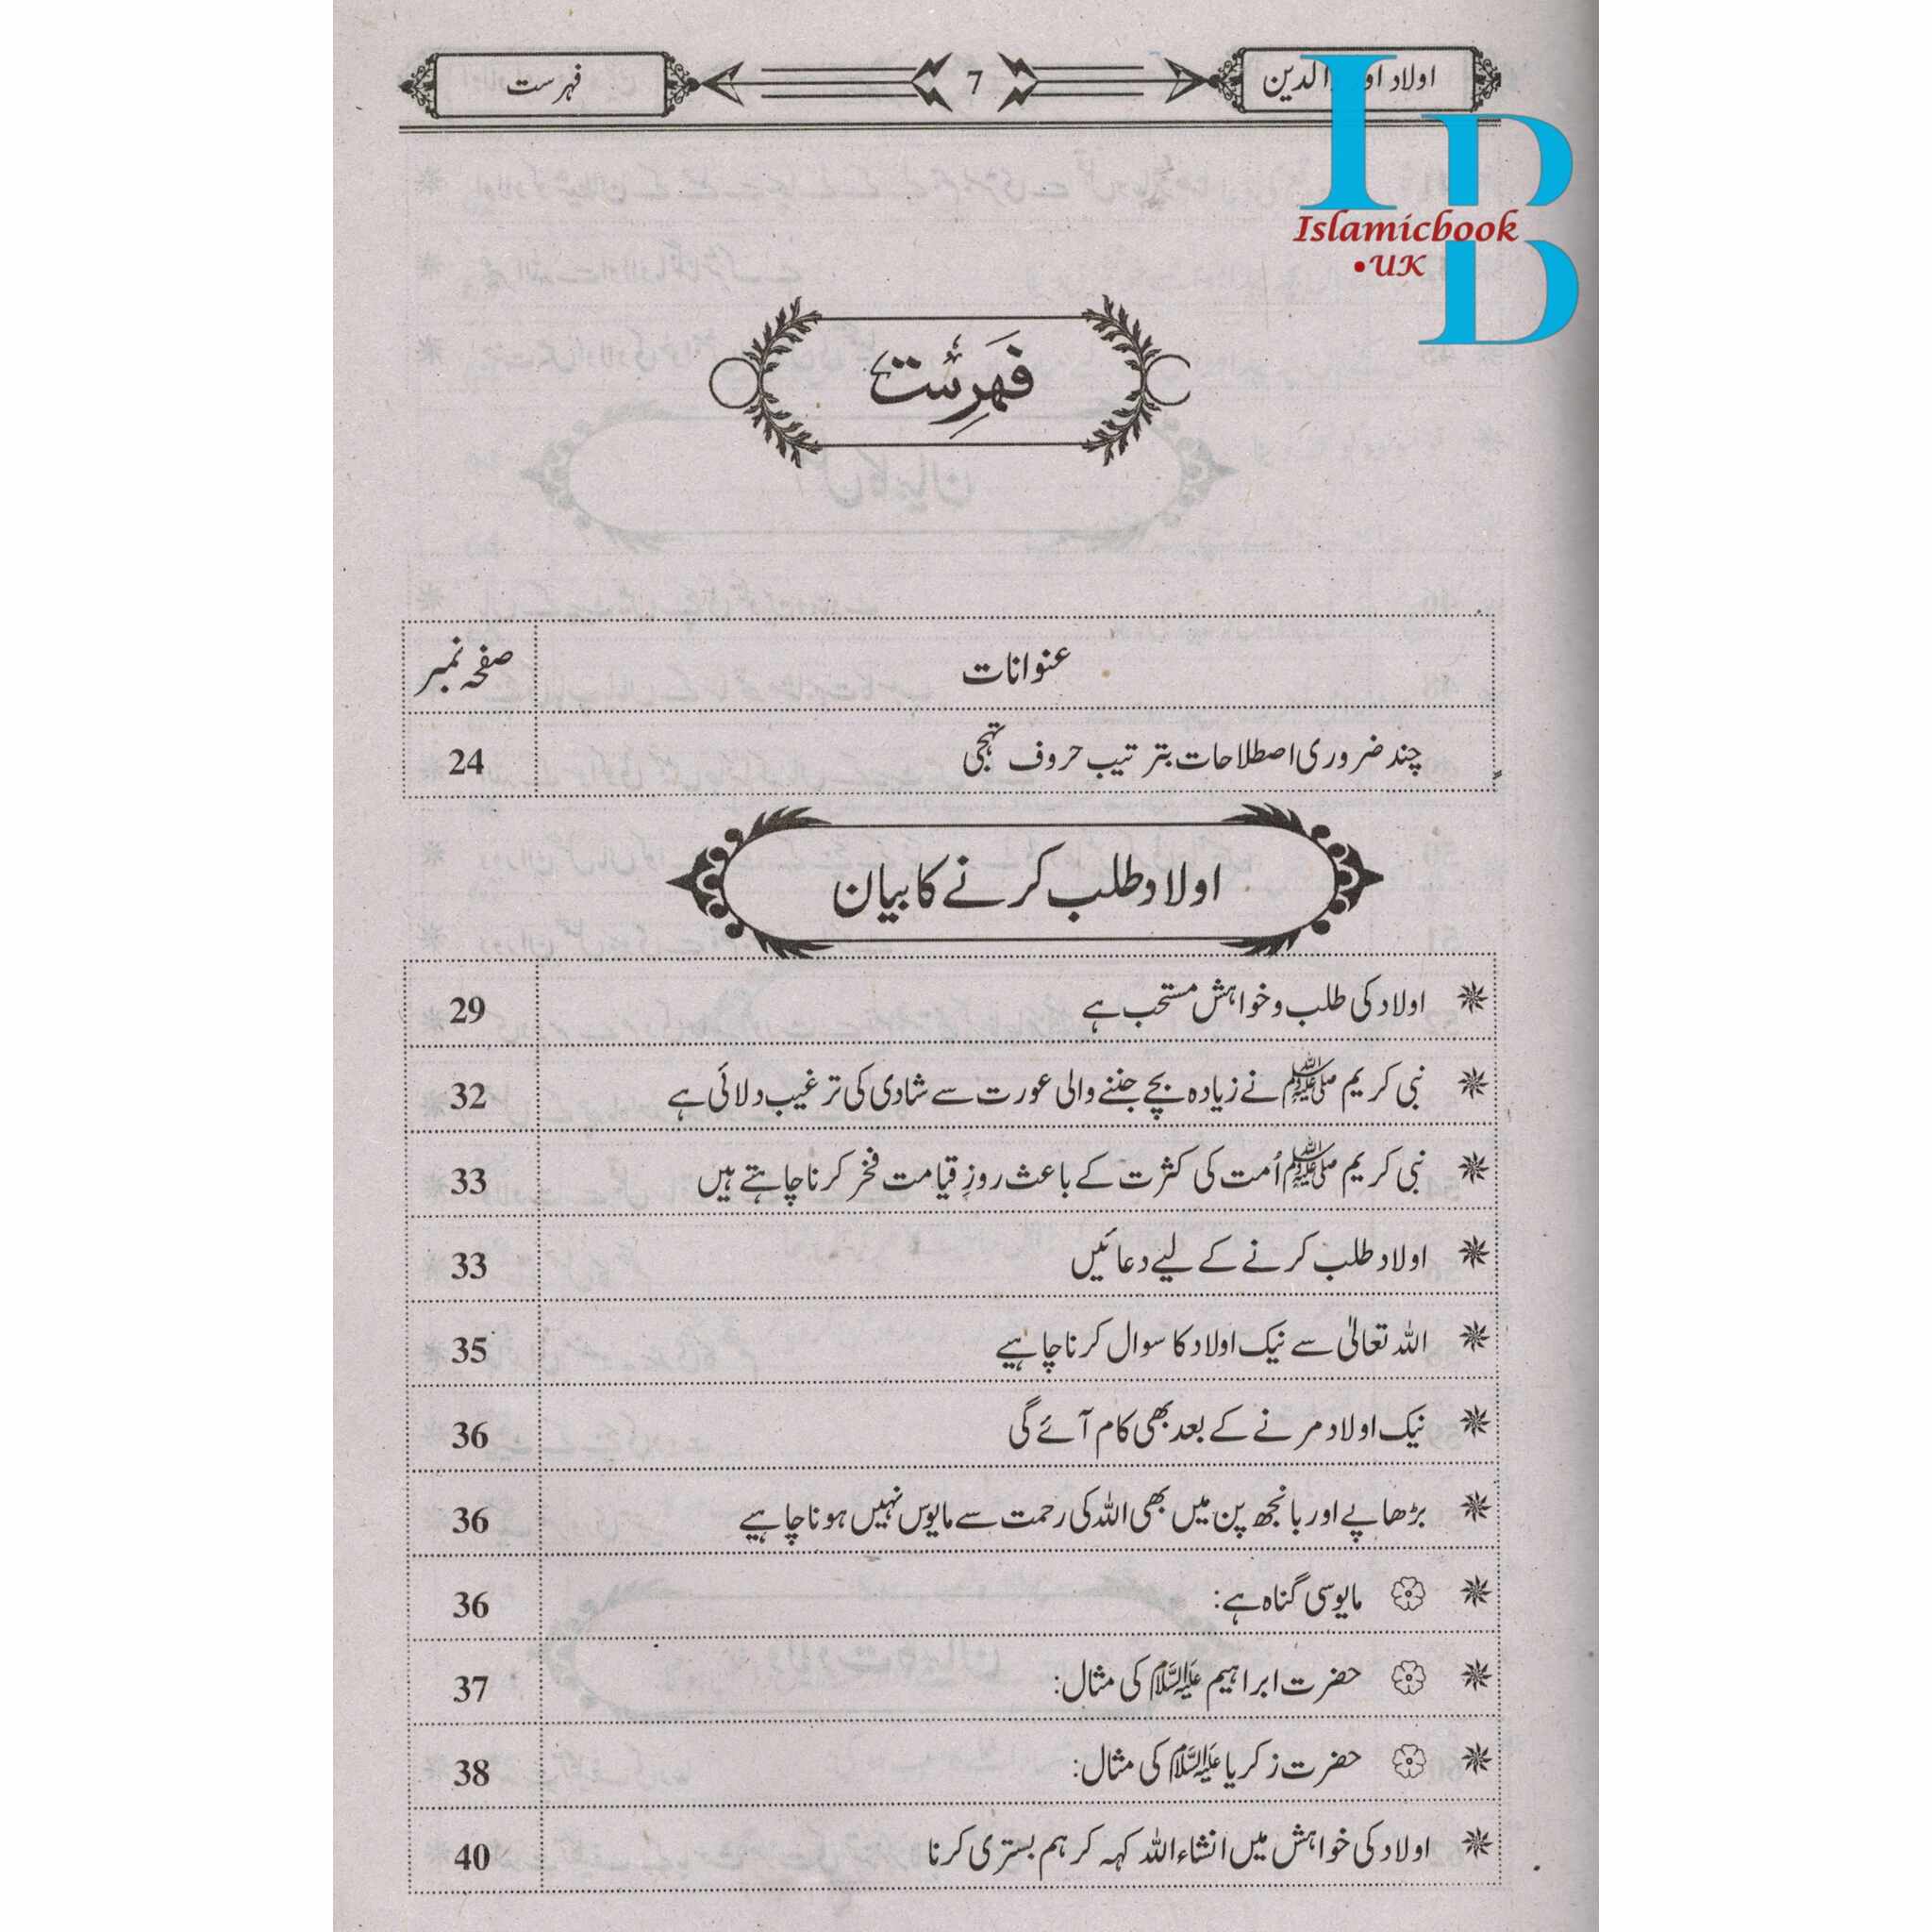 اولاد اور والدین
7
فہرست
Islamicbook
.UK
IB
فہرست
عنوانات صفحہ نمبر
چند ضروری اصطلاحات بترتیب حروف تہجی 24
اولاد طلب کرنے کا بیان
اولاد کی طلب و خواہش مستحب ہے 29
نبی کریم ﷺ نے زیادہ بچے جننے والی عورت سے شادی کی ترغیب دلائی ہے 32
نبی کریم ﷺ اُمت کی کثرت کے باعث روزِ قیامت فخر کرنا چاہتے ہیں 33
اولاد طلب کرنے کے لیے دعائیں 33
اللہ تعالیٰ سے نیک اولاد کا سوال کرنا چاہیے 35
نیک اولاد مرنے کے بعد بھی کام آئے گی 36
بڑھاپے اور بانجھ پن میں بھی اللہ کی رحمت سے مایوس نہیں ہونا چاہیے 36
مایوسی گناہ ہے: 36
حضرت ابراہیم علیہ السلام کی مثال: 37
حضرت زکریا علیہ السلام کی مثال: 38
اولاد کی خواہش میں انشاء اللہ کہہ کر ہم بستری کرنا 40